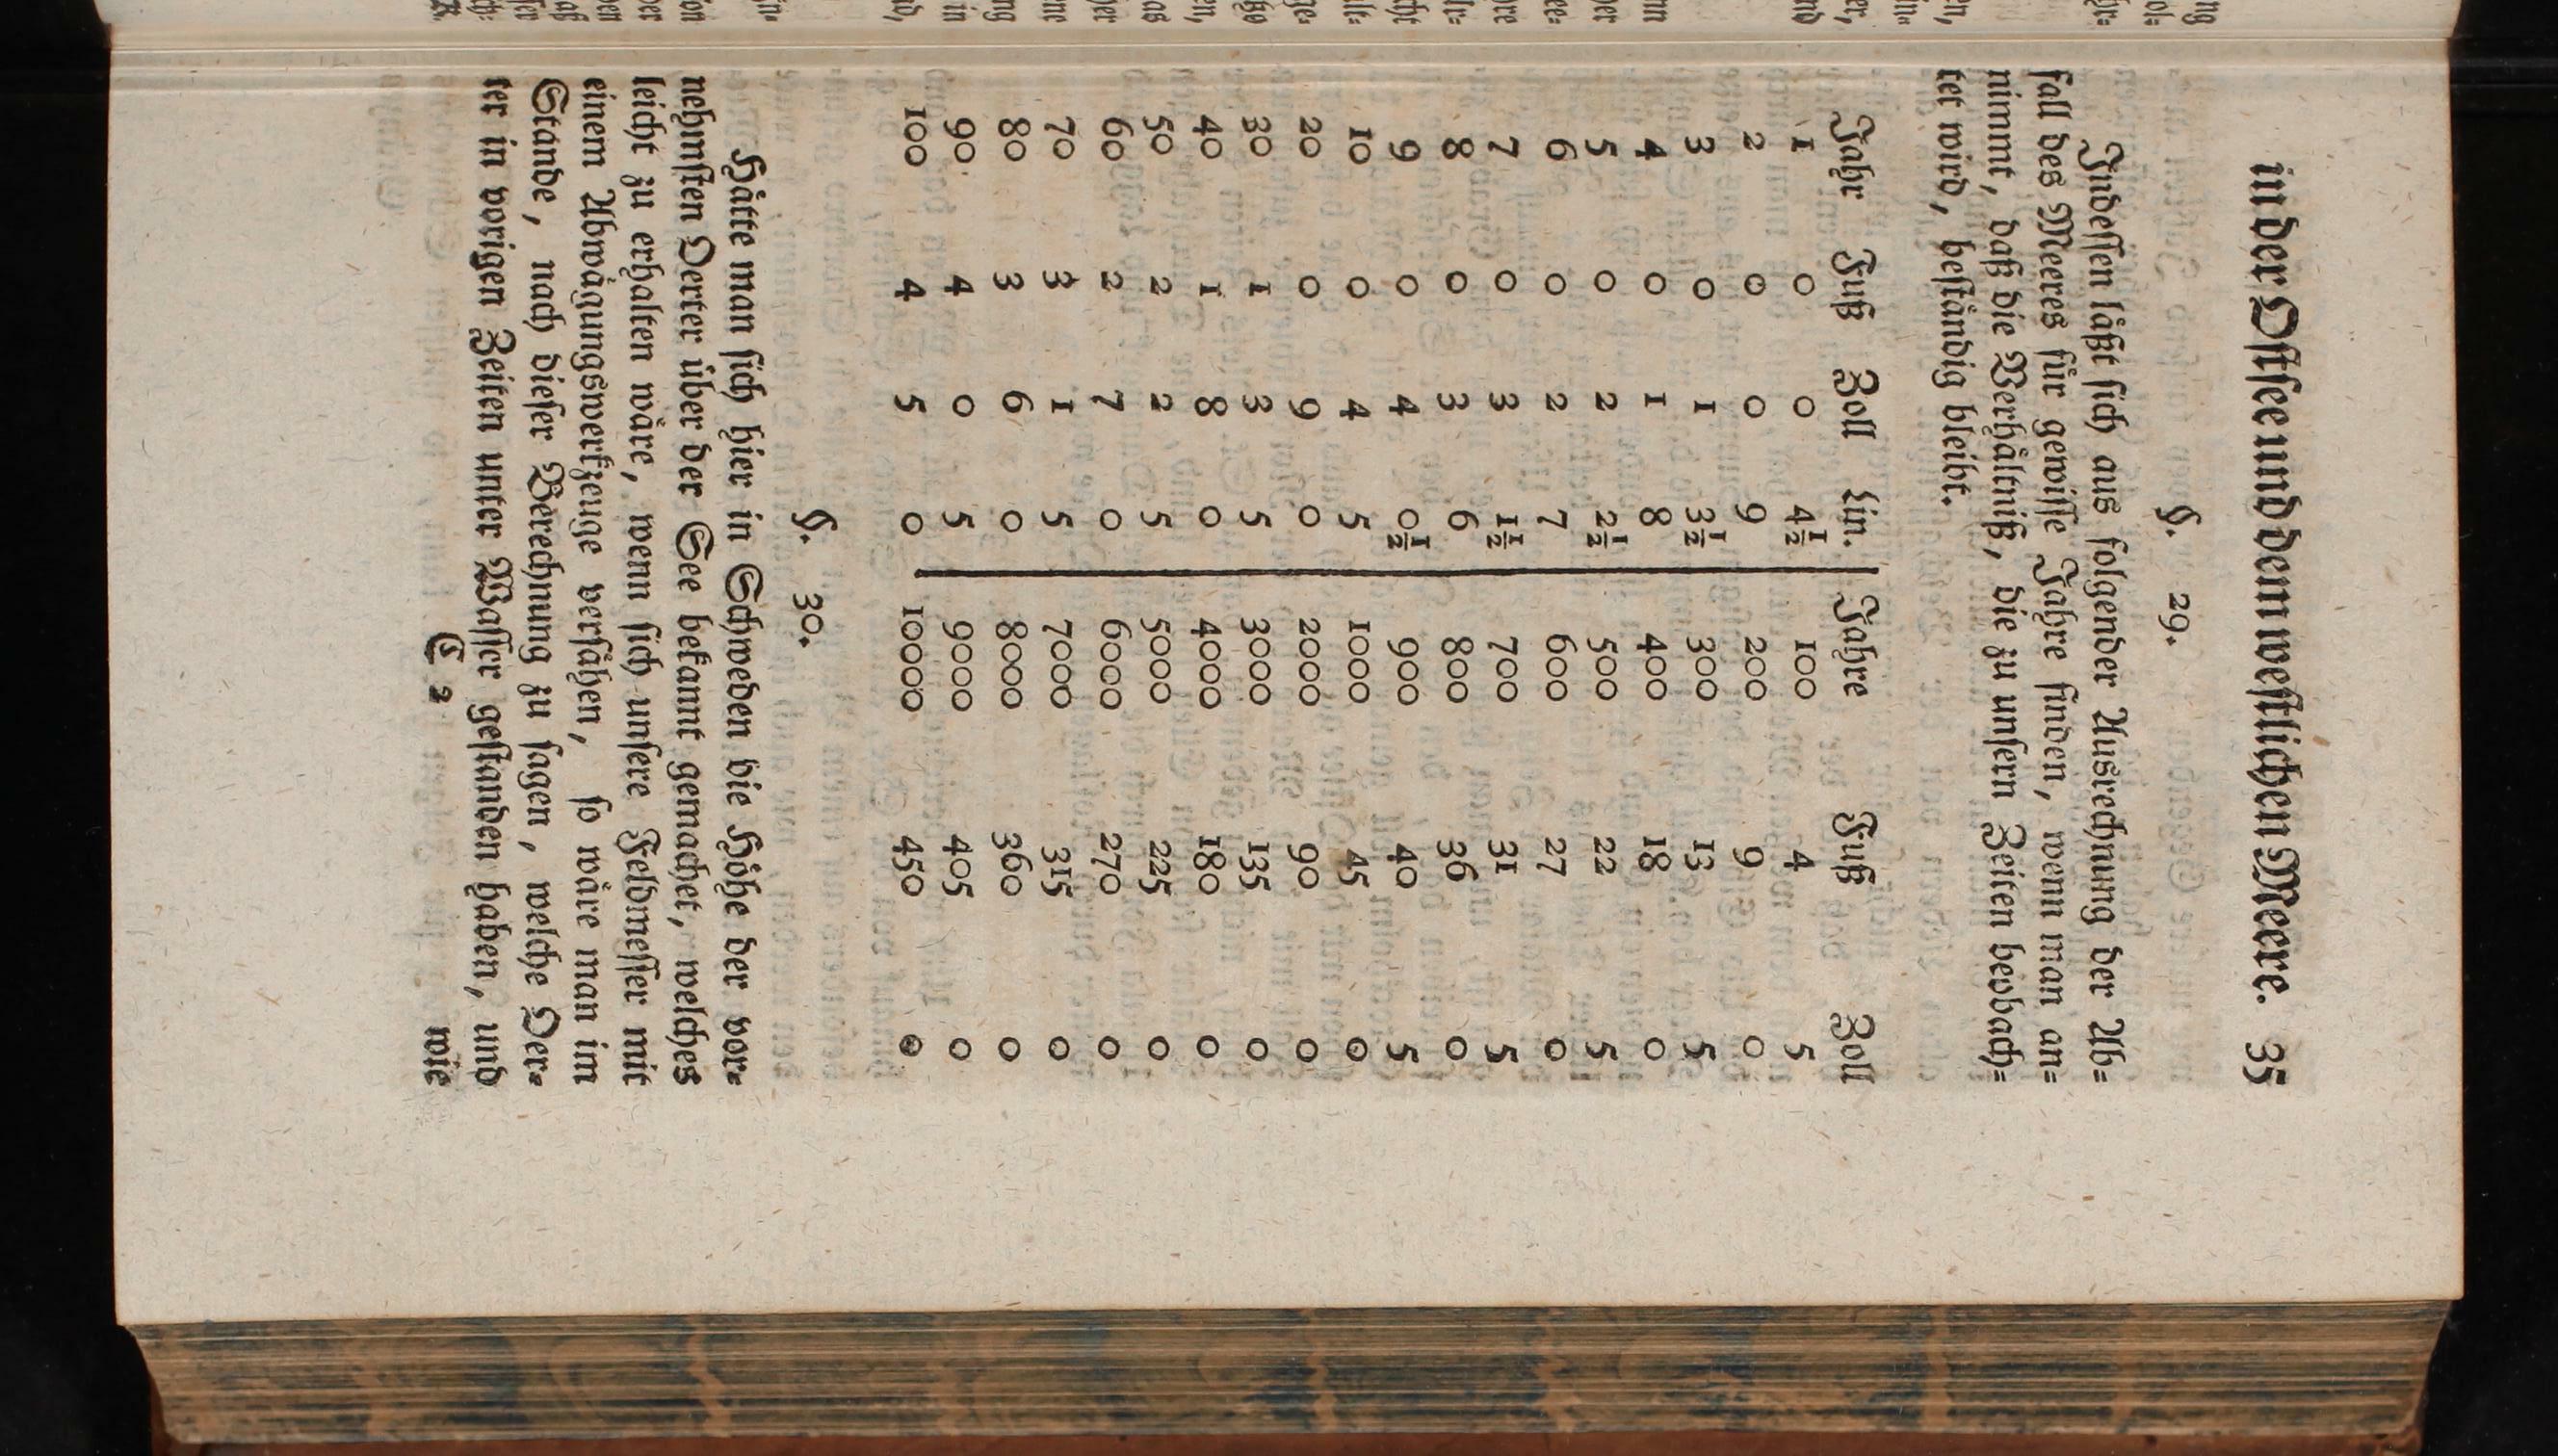 in der Ostsee und dem westlichen Meere. 35
§. 29.
Indessen läßt sich aus folgender Ausrechnung der Ab=
fall des Meeres für gewisse Jahre finden, wenn man an=
nimmt, daß die Verhältniß, die zu unsern Zeiten beobach=
tet wird, beständig bleibt.
Jahr Fuß Zoll Lin. Jahre Fuß Zoll
1 0 0 4½ 100 4 5
2 0 0 9 200 9 0
3 0 1 3½ 300 13 5
4 0 1 8 400 18 0
5 0 2 2½ 500 22 5
6 0 2 7 600 27 0
7 0 3 1½ 700 31 5
8 0 3 6 800 36 0
9 0 4 0½ 900 40 5
10 0 4 5 1000 45 0
20 0 9 0 2000 90 0
30 1 3 5 3000 135 0
40 1 8 0 4000 180 0
50 2 2 5 5000 225 0
60 2 7 0 6000 270 0
70 3 1 5 7000 315 0
80 3 6 0 8000 360 0
90 4 0 5 9000 405 0
100 4 5 0 10000 450 0
§. 30.
Hätte man sich hier in Schweden die Höhe der vor=
nehmsten Oerter über der See bekannt gemachet, welches
leicht zu erhalten wäre, wenn sich unsere Feldmesser mit
einem Abwägungswerkzeuge versähen, so wäre man im
Stande, nach dieser Berechnung zu sagen, welche Oer=
ter in vorigen Zeiten unter Wasser gestanden haben, und
C 2 wie